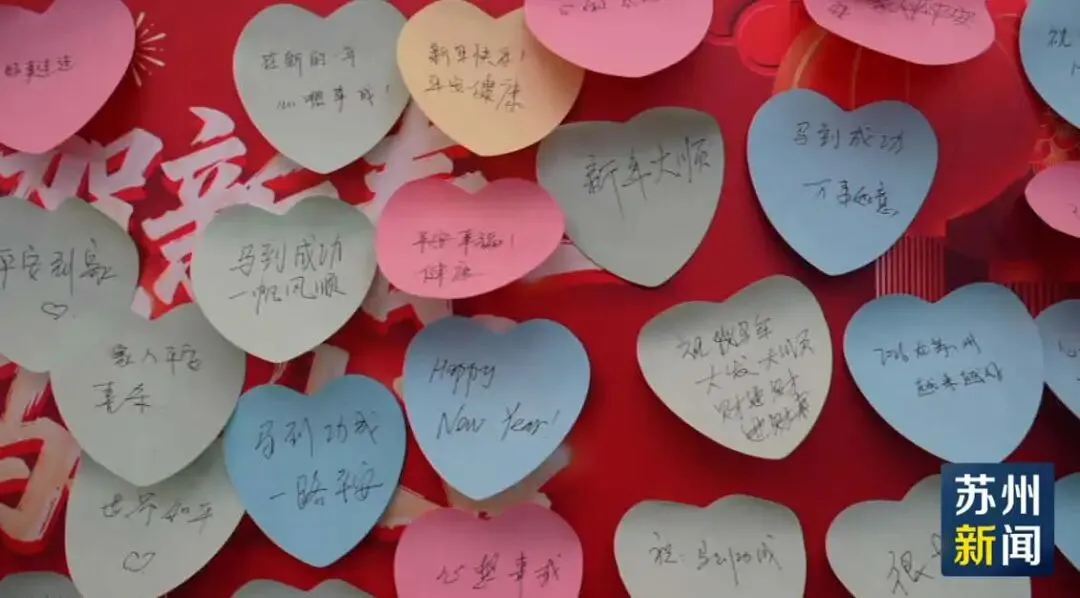 好事连连
在新的一年
心想事成!
新年快乐!
平安健康
新年大顺
马到成功
万事如意
祝
贺新春
平安到家
马到成功
一帆风顺
平安幸福!
健康
家人平安
喜乐
Happy
New Year!
祝我马年
大发大顺
2026在苏州
越来越好
马到功成
一路平安
世界和平
心想事成
祝:马到功成
很
苏州
新闻